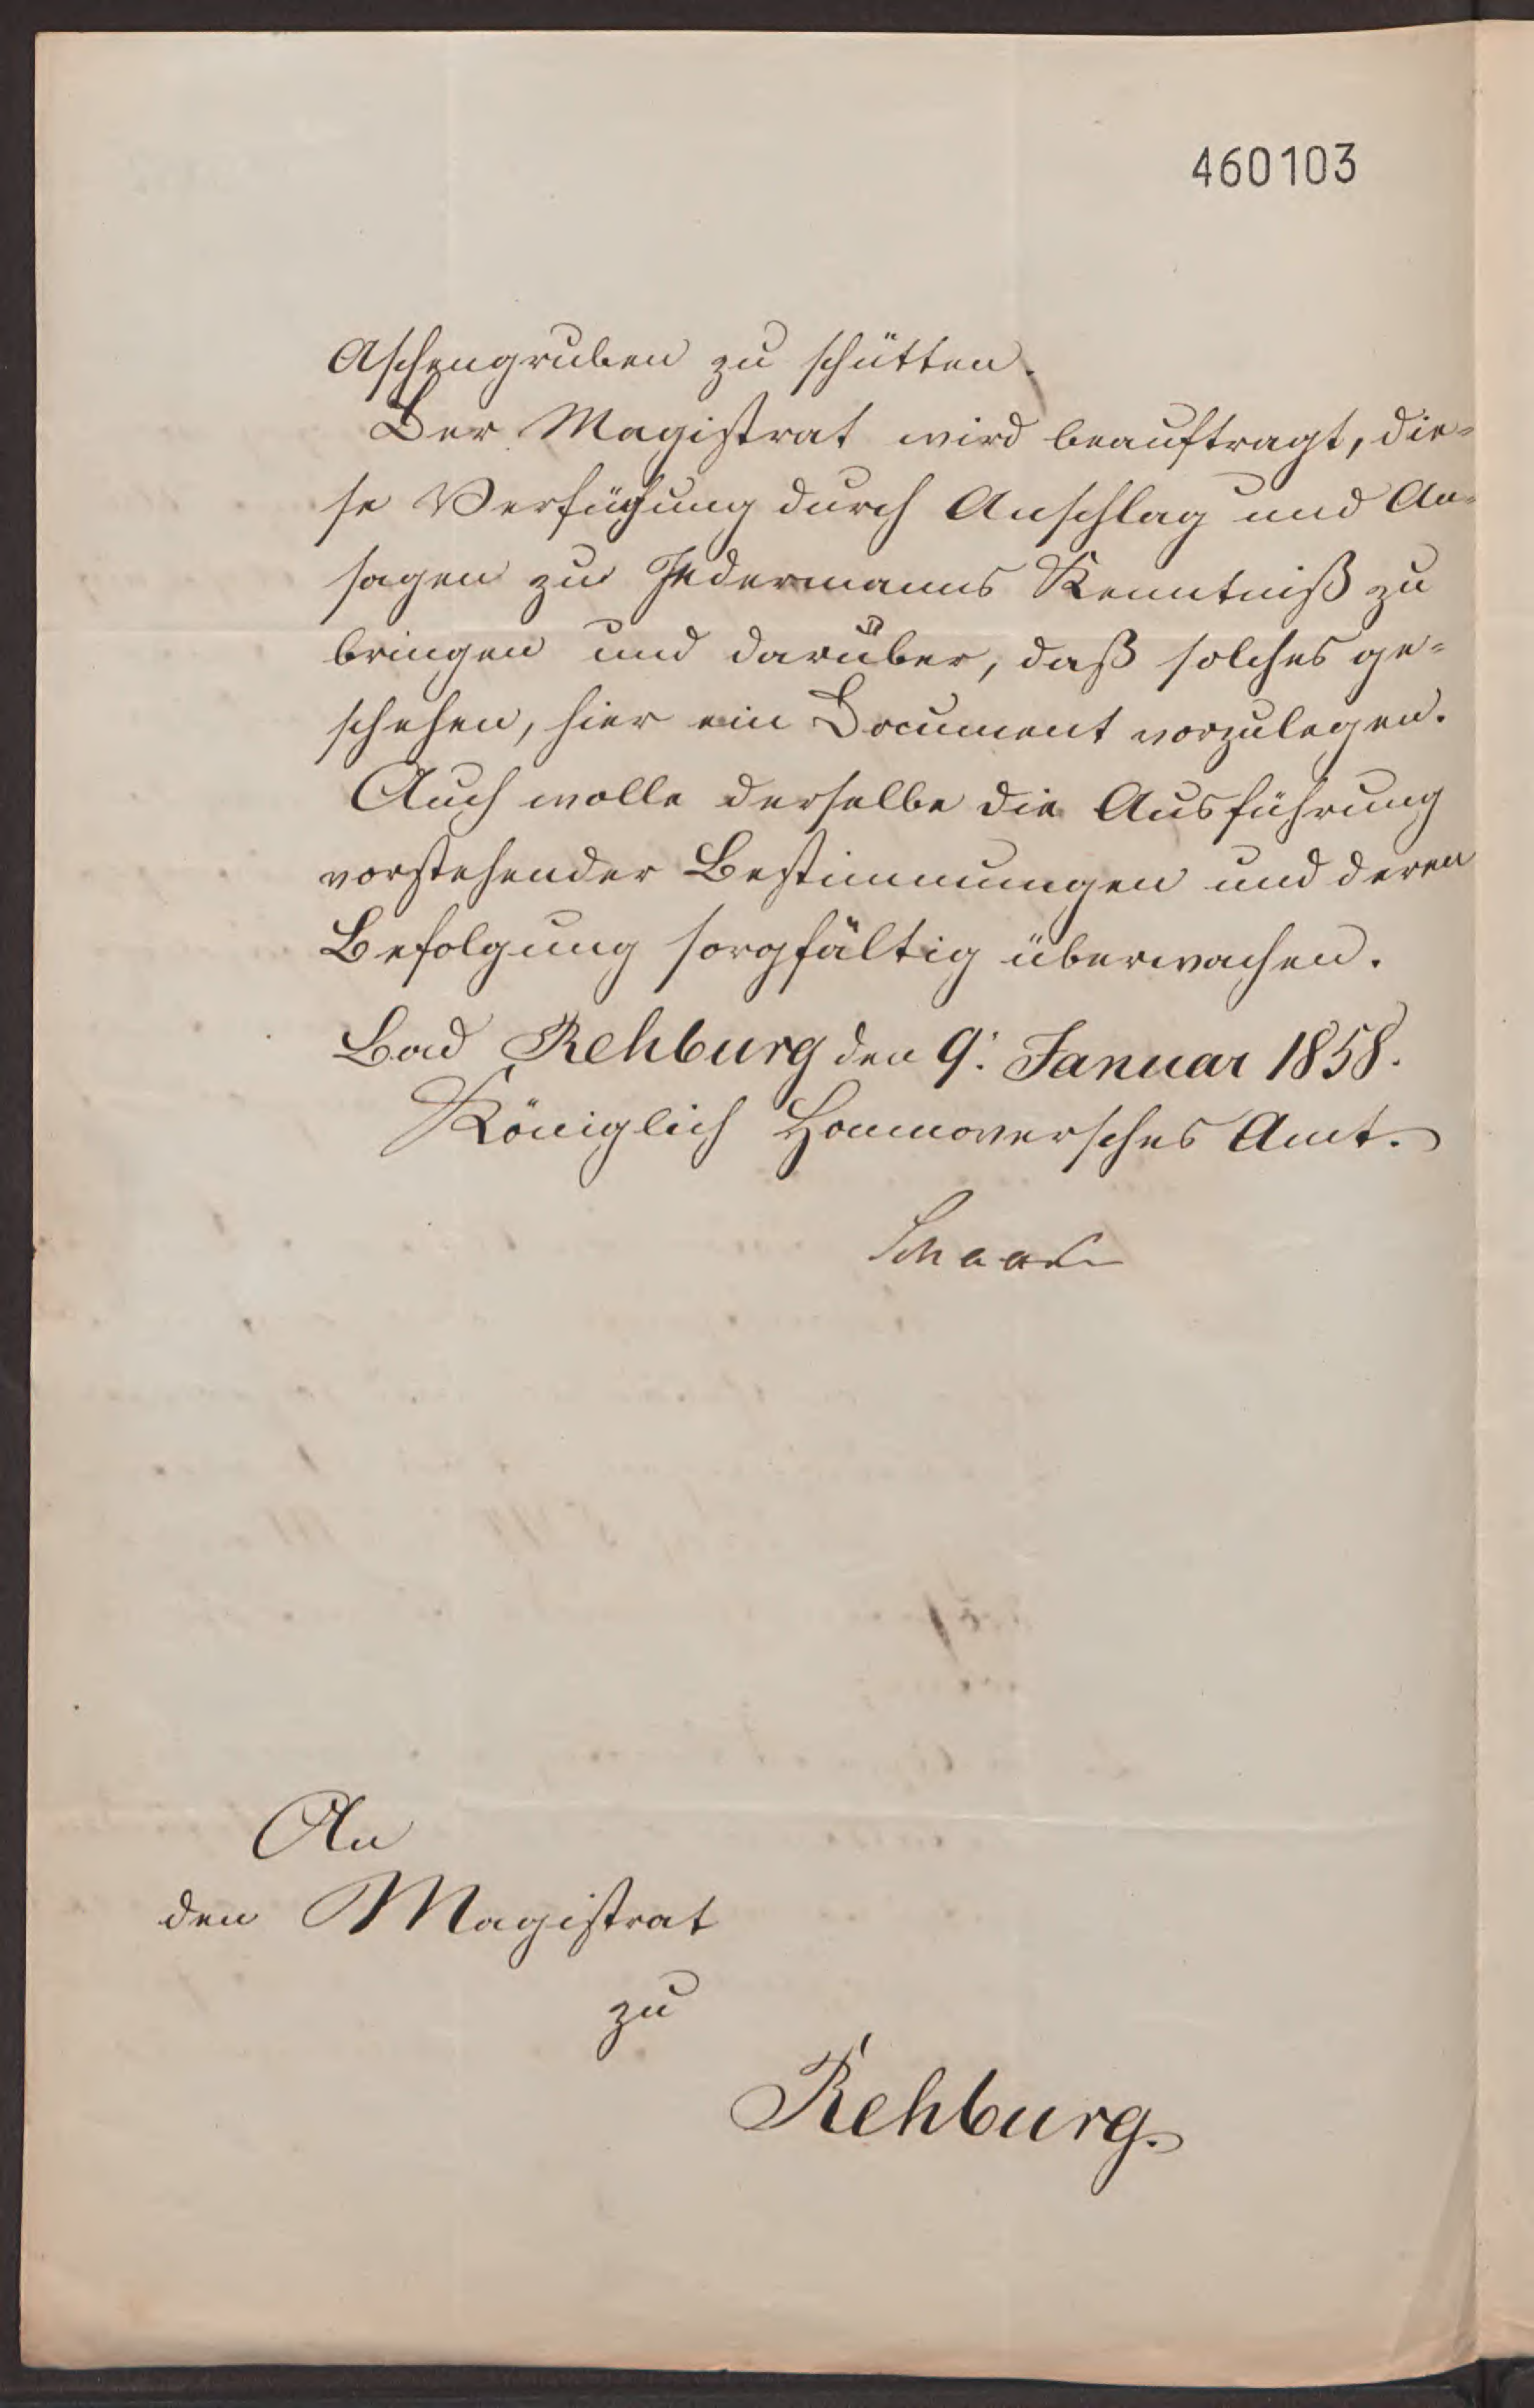 460103
Aschengruben zu schütten.
Der Magistrat wird beauftragt, die-
se Verfügung durch Anschlag und An-
sagen zu Jedermanns Kenntniß zu
bringen und darüber, daß solches ge-
schehen, hier ein Document vorzulegen.
Auch wolle derselbe die Ausführung
vorstehender Bestimmungen und deren
Befolgung sorgfältig überwachen.
Bad Rehburg den 9. Januar 1858.
Königlich Hannoversches Amt.
An
den Magistrat
zu
Rehburg.